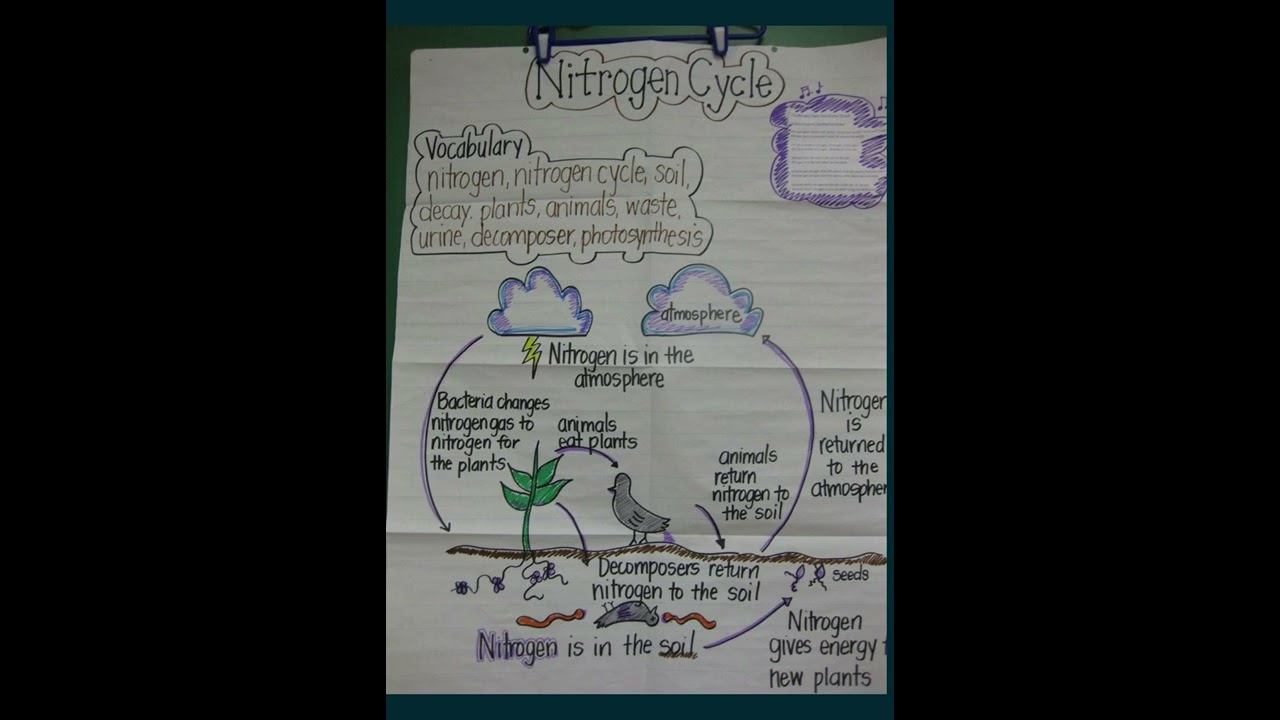 Nitrogen Cycle
Vocabulary
nitrogen, nitrogen cycle, soil,
decay. plants, animals, waste,
urine, decomposer, photosynthesis
atmosphere
Nitrogen is in the
atmosphere
Bacteria changes
nitrogen gas to
nitrogen for
the plants
animals
eat plants
animals
return
nitrogen to
the soil
Nitrogen
is
returned
to the
atmospher
Decomposers return
nitrogen to the soil
seeds
Nitrogen is in the soil
Nitrogen
gives energy t
new plants